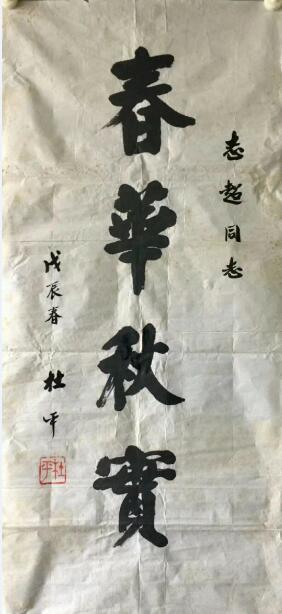 志超同志
春華秋實
戊辰春 杜平
杜平